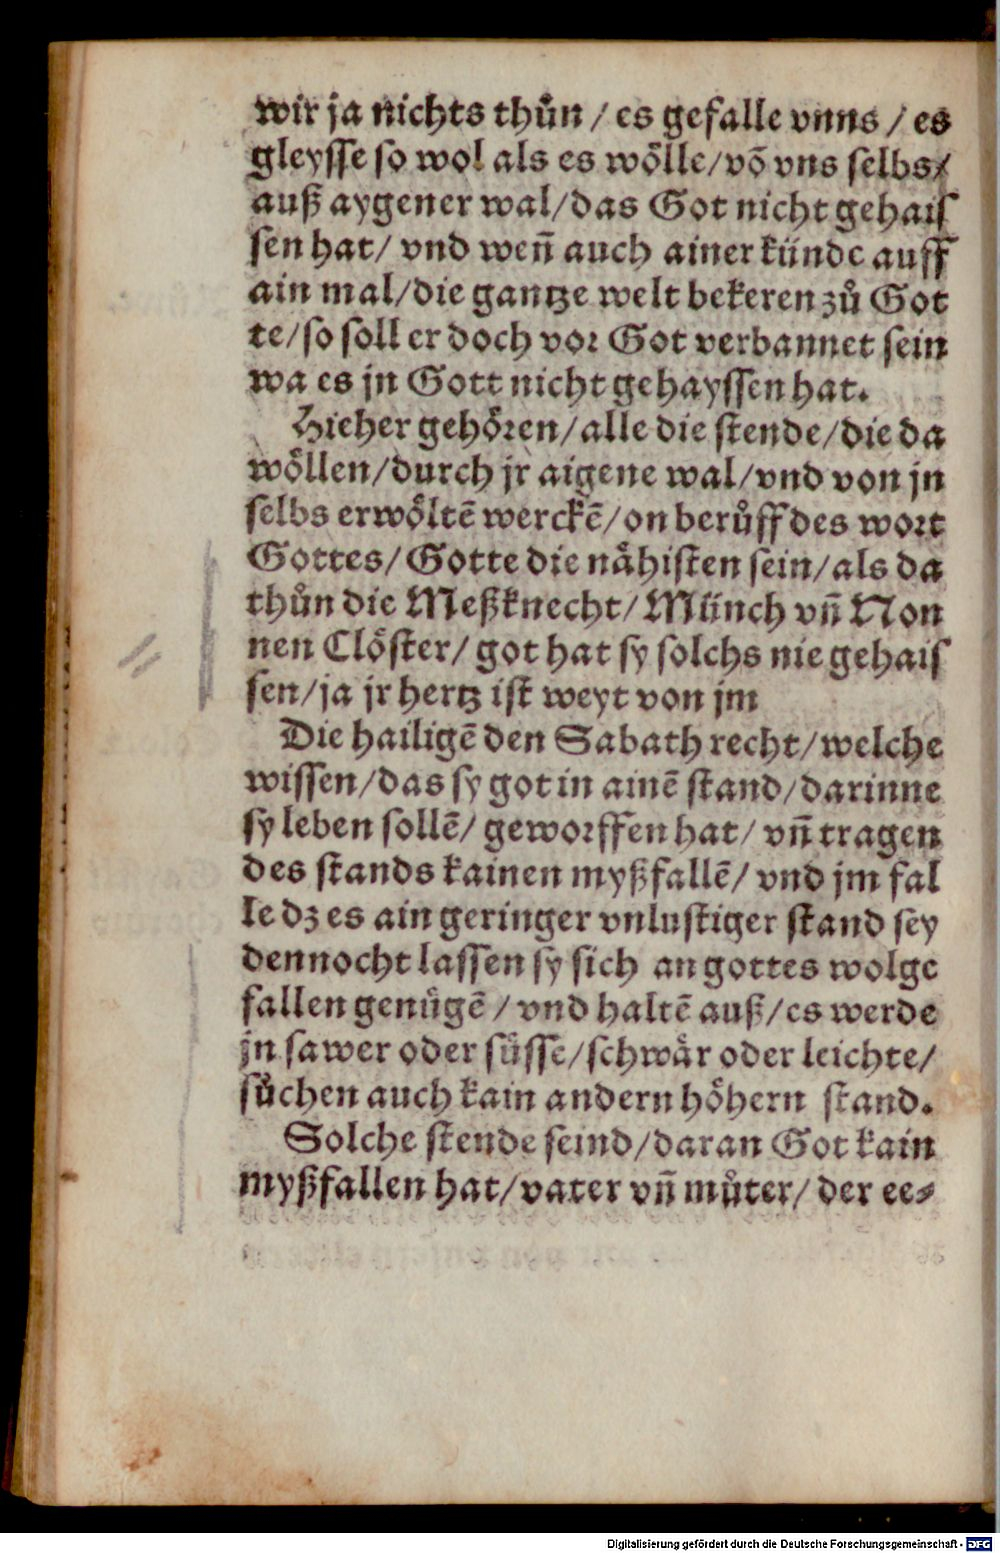 wir ja nichts thůn / es gefalle vnns / es
gleysse so wol als es wölle/võ vns selbs/
auß aygener wal/das Got nicht gehais
sen hat/ vnd weñ auch ainer künde auff
ain mal/die gantze welt bekeren zů Got
te/so soll er doch vor Got verbannet sein
wa es jn Gott nicht gehayssen hat.
Hieher gehören/alle die stende/die da
wöllen/durch jr aigene wal/vnd von jn
selbs erwöltẽ werckẽ/on berůff des wort
Gottes/Gotte die nähisten sein/als da
thůn die Meßknecht/Münch vñ Non
nen Clöster/ got hat sy solchs nie gehais
sen/ja jr hertz ist weyt von jm
Die hailigẽ den Sabath recht/welche
wissen/das sy got in ainẽ stand/darinne
sy leben sollẽ/ geworffen hat/ vñ tragen
des stands kainen myßfallẽ/ vnd jm fal
le dz es ain geringer vnlustiger stand sey
dennocht lassen sy sich an gottes wolge
fallen genügẽ / vnd haltẽ auß/es werde
jn sawer oder süsse/schwär oder leichte/
sůchen auch kain andern höhern stand.
Solche stende seind/daran Got kain
myßfallen hat/vater vñ můter/ der ee⸗
Digitalisierung gefördert durch die Deutsche Forschungsgemeinschaft - DFG